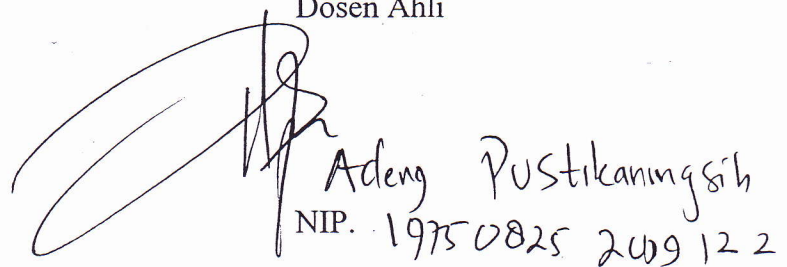 Dosen Ahli
Adeng Pustikaningsih
NIP. 19750825 200912 2